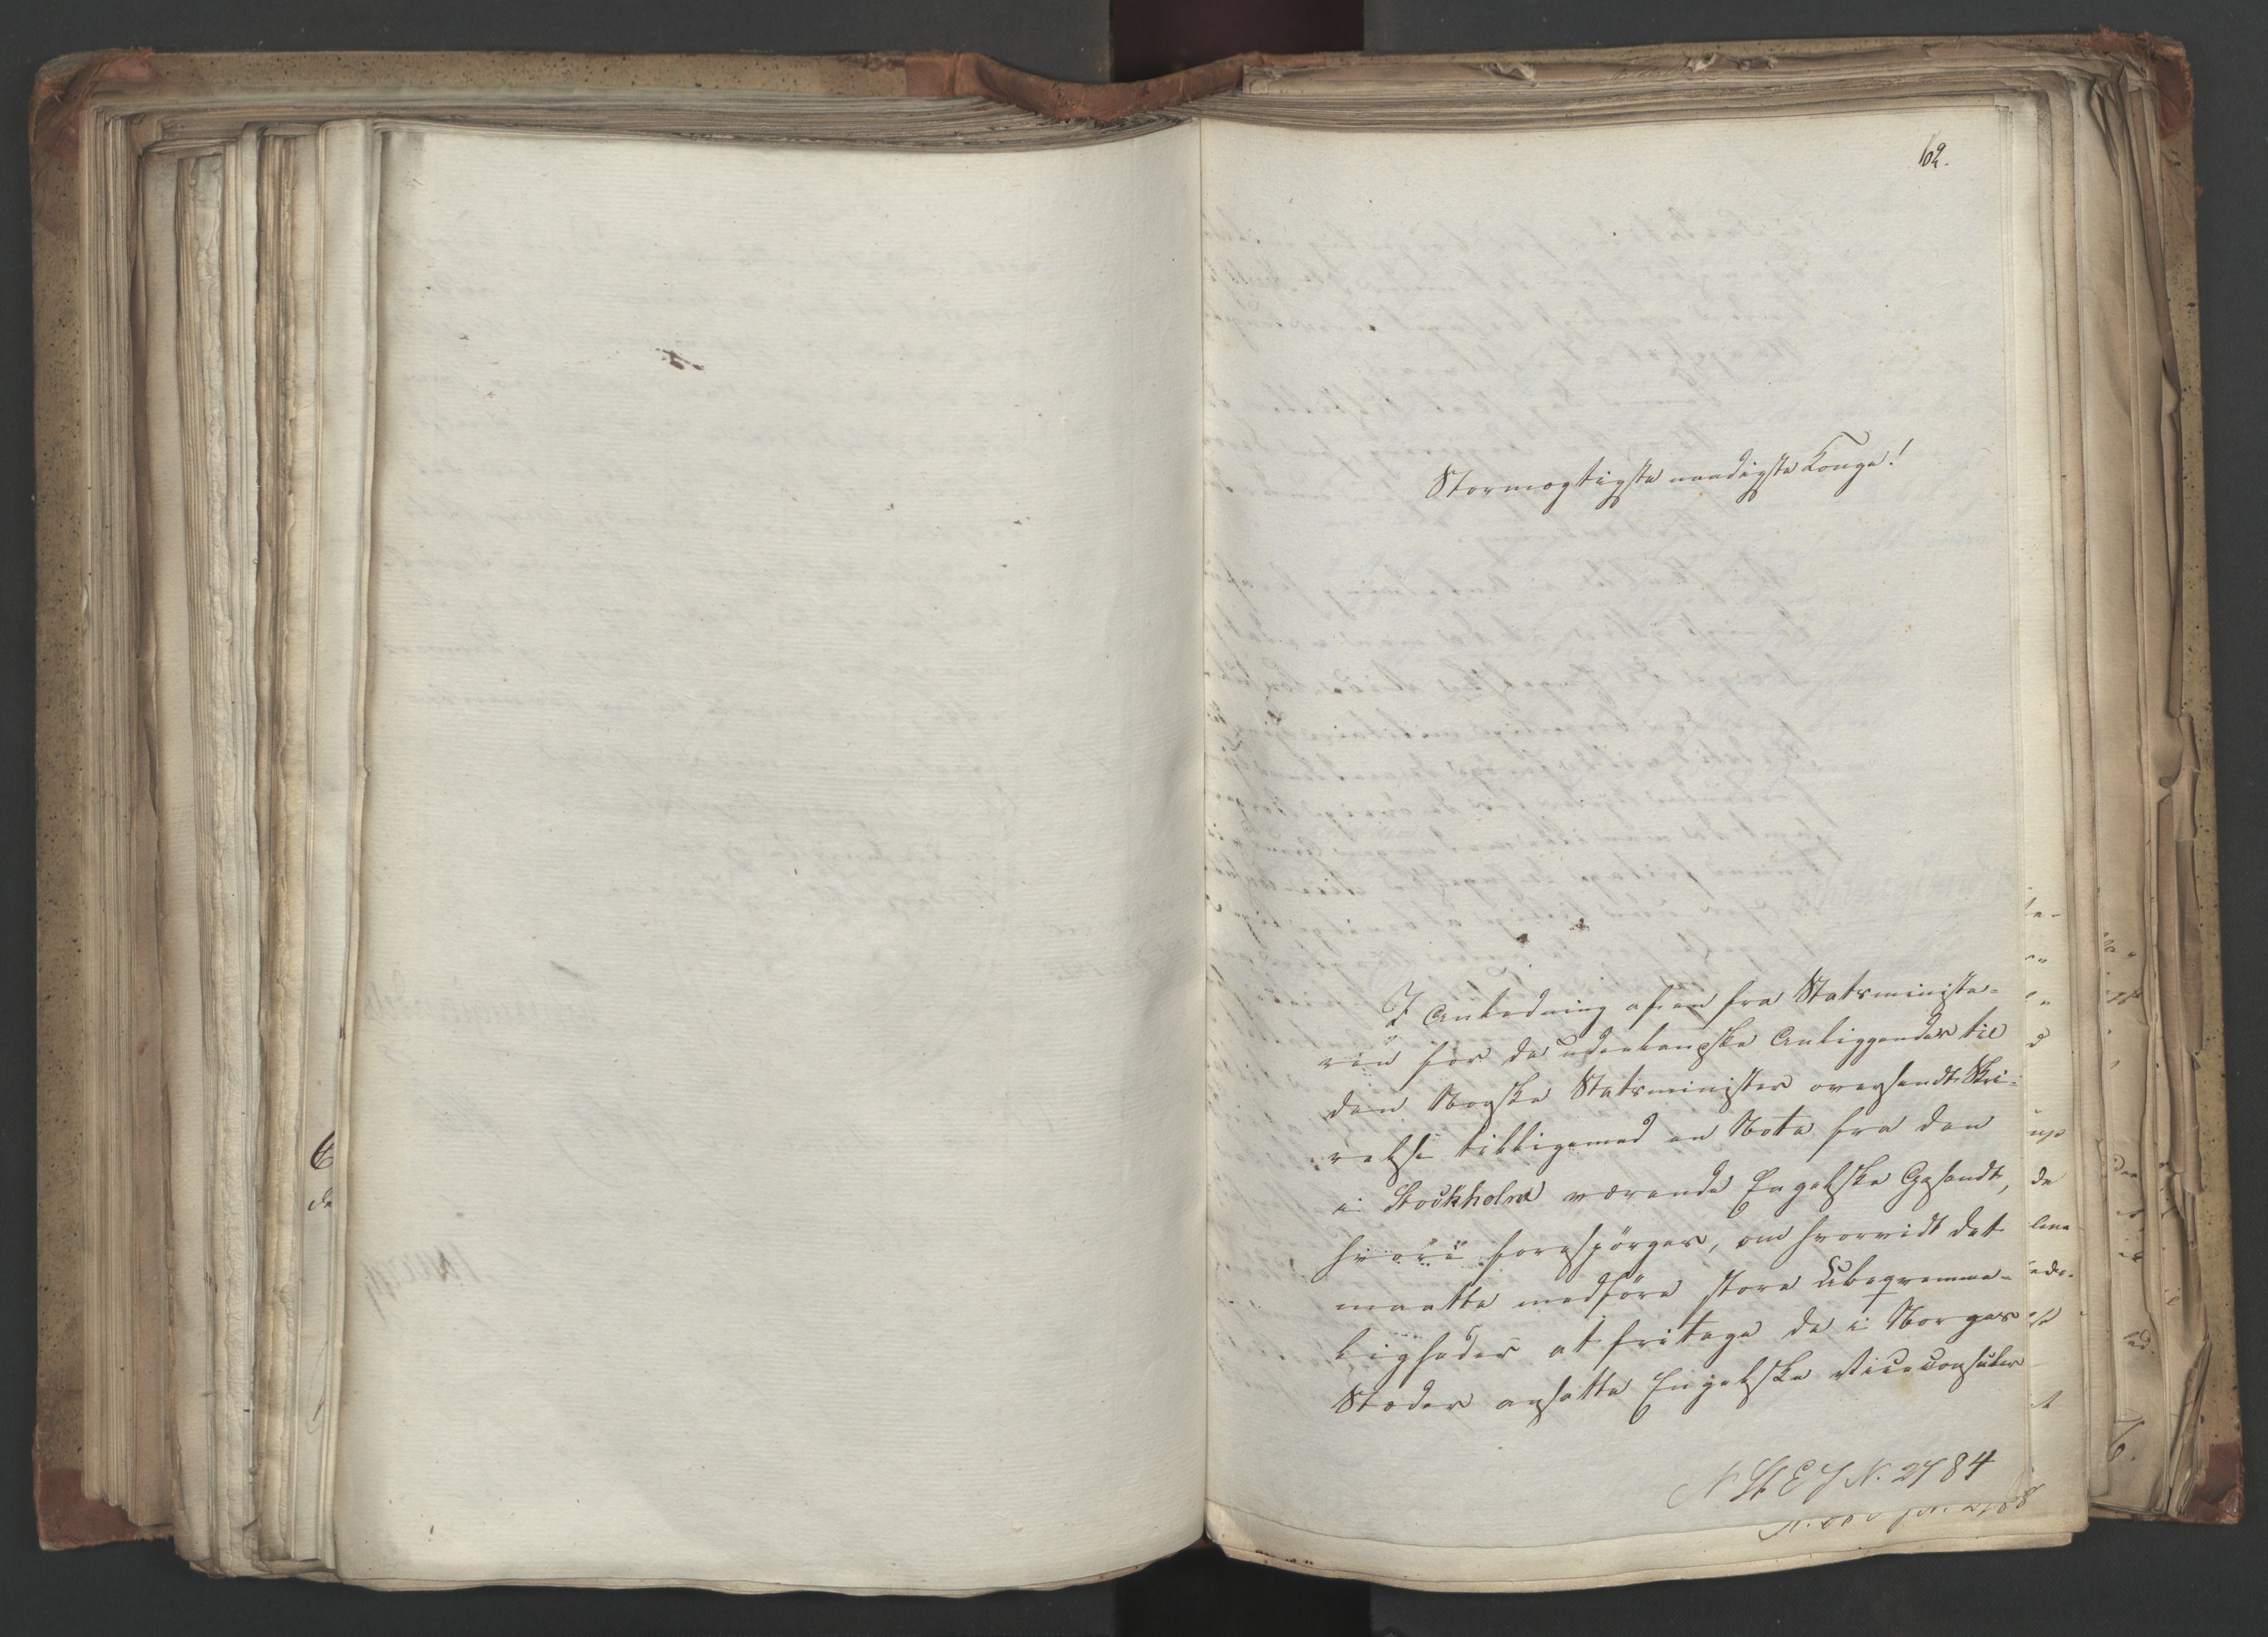 62.
Stormægtigste naadigste Konge!
I Anledning af en fra Statsministe-
ren for de udenlandske Anliggender til
den Norske Statsminister oversendt Skri-
velse tilligemed en Nota fra den
i Stockholm værende Engelske Gesandt,
hvori forespørges, om hvorvidt det
maatte medføre store Ubeqvemme-
ligheder at fritage de i Norges
Stæder ansatte Engelske Viceconsuler
N. St. E. J. N. 2784